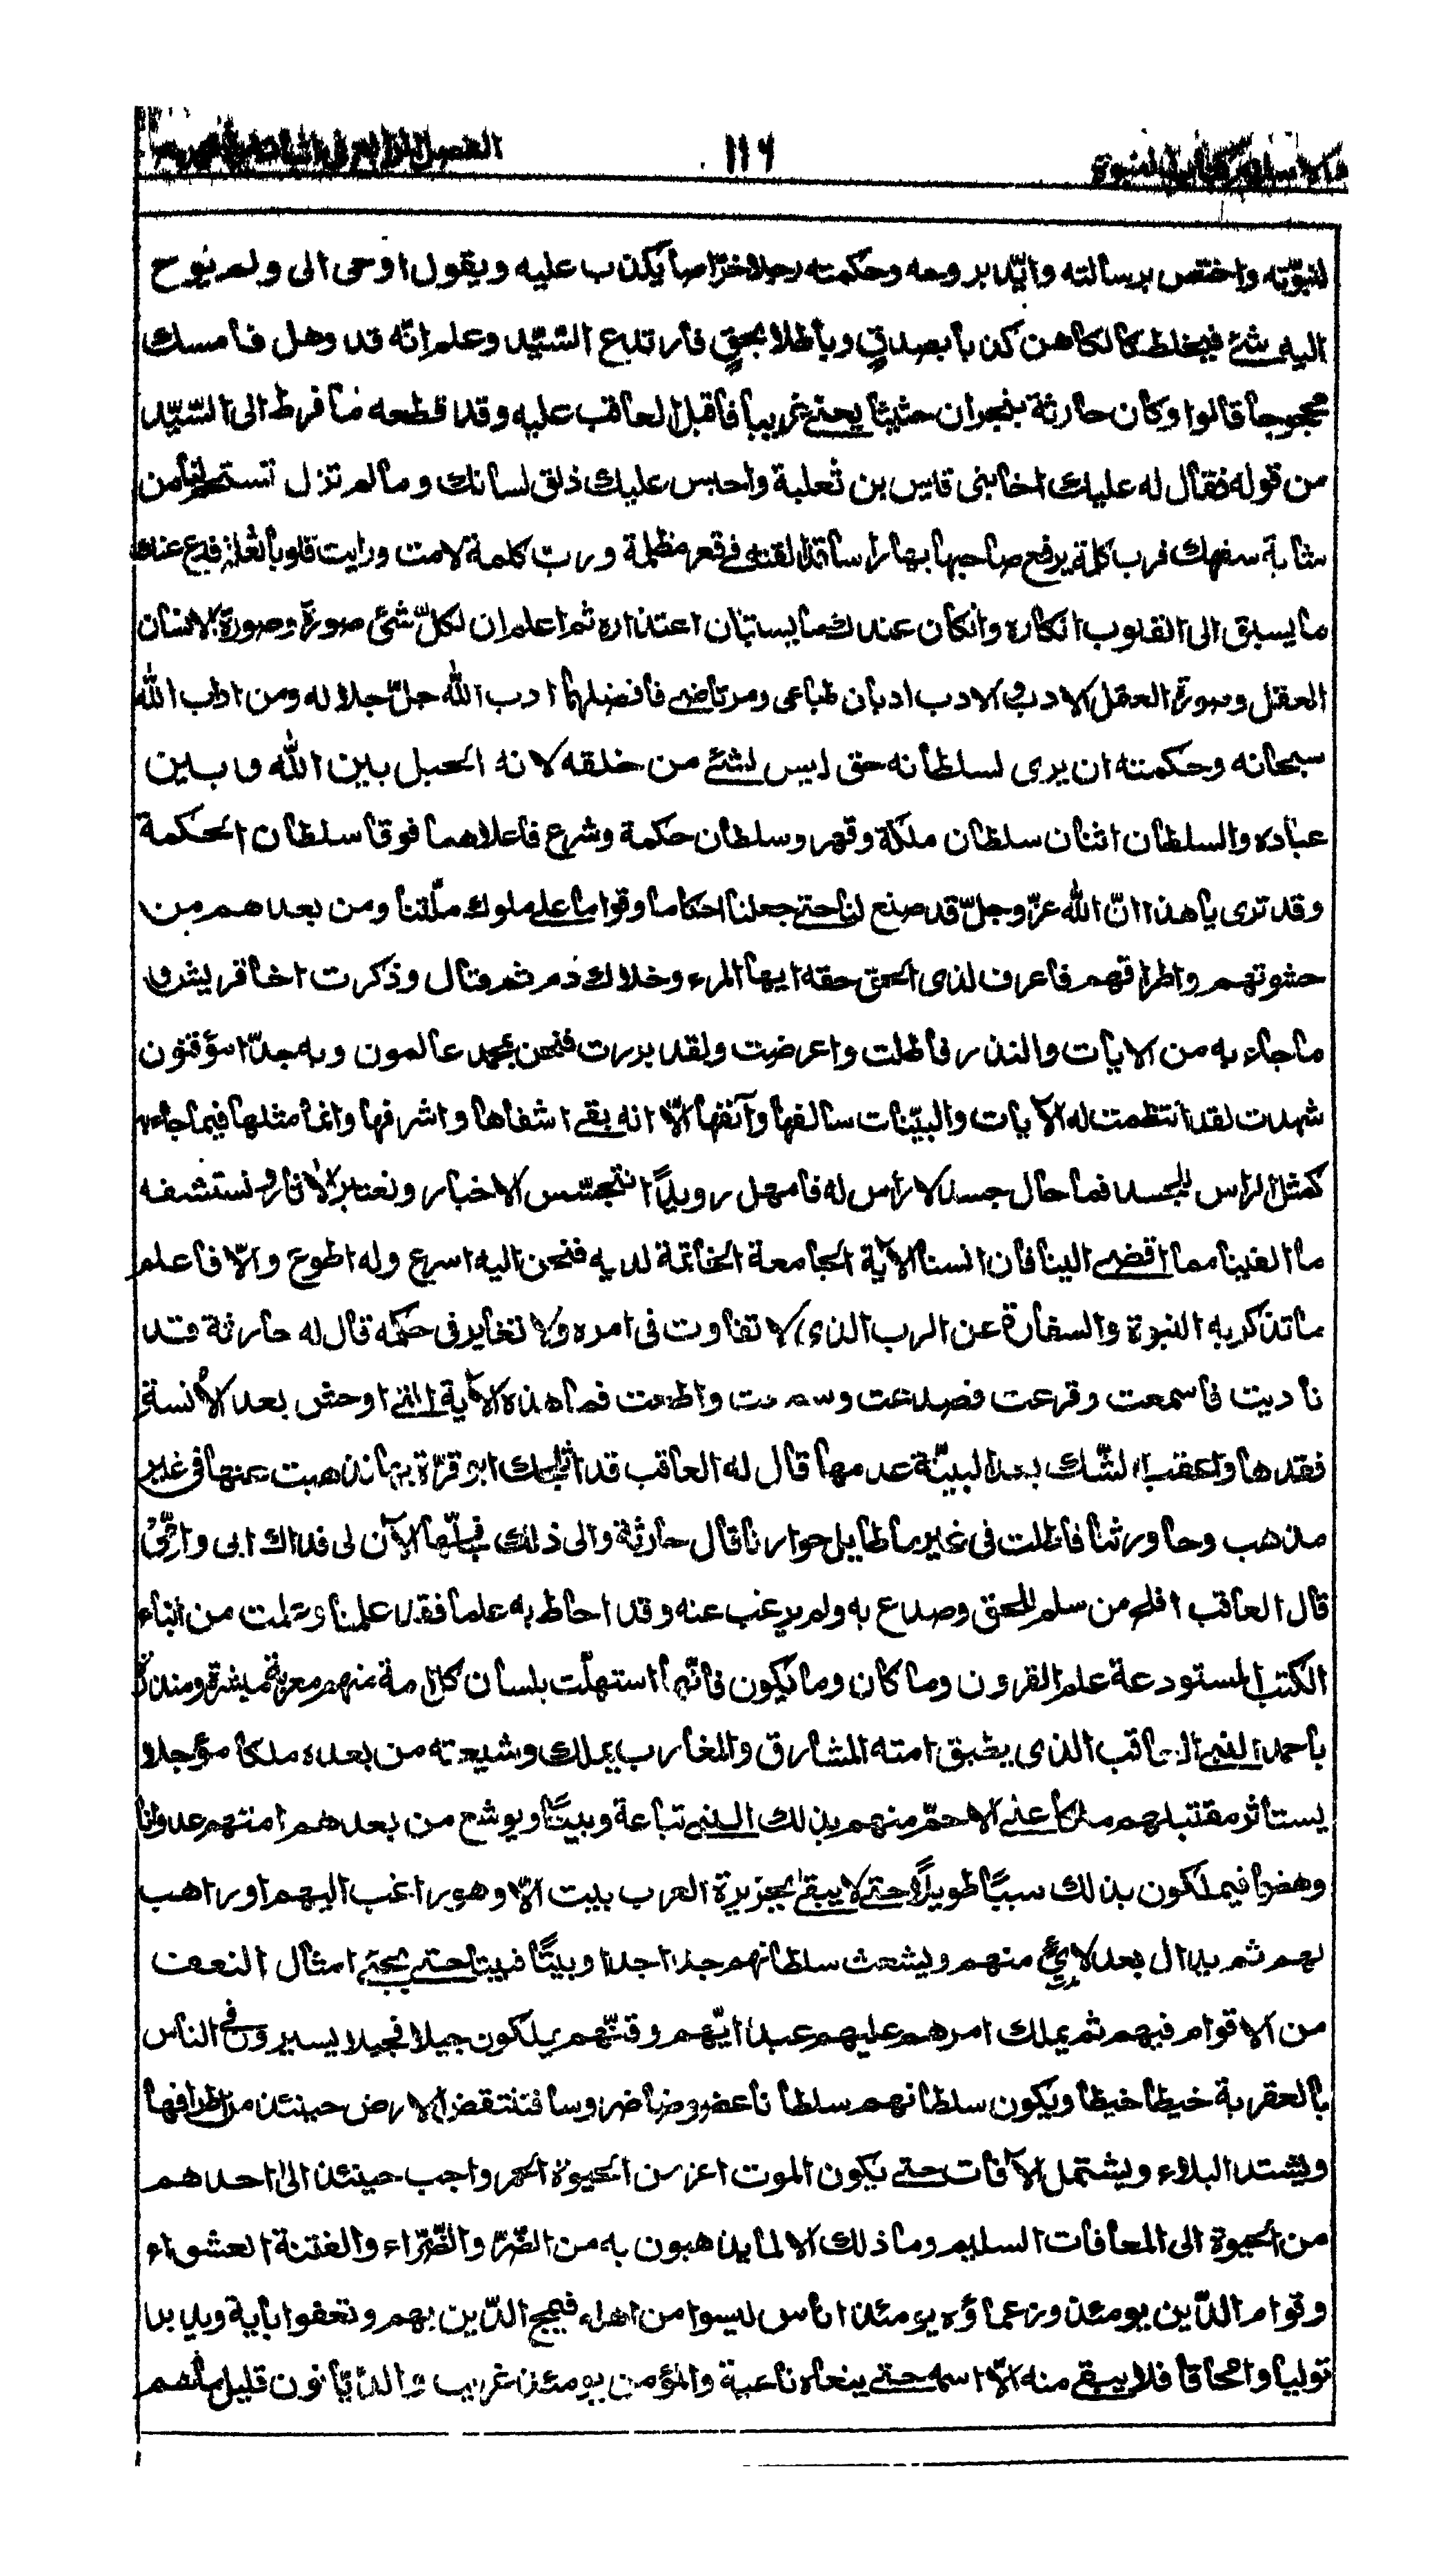 ١١٦
لنبوّته واختص برسالته وايّد بروحه وحكمته رجلا خرّاصا يكذب عليه ويقول اوحى الى ولم يوح
اليه شئ فيخلط كالكاهن كذبا بصدقٍ وباطلا بحقٍ فارتدع السّيّد وعلم انّه قد وهل فامسك
محجوجا قالوا وكان حارثة بنجران حثيثا يعنى غريبا فاقبل العاقب عليه وقد قطعه ما فرط الى السّيّد
من قوله فقال له عليك اخا بنى قيس بن ثعلبة واحبس عليك ذلق لسانك وما لم تزل تستحم لنا من
مثابة سفهك فرب كلمة يرفع صاحبها بها راسا قد القته فى قعر مظلمة ورب كلمة لامت ورابت قلوبا نغلة فدع عنك
ما يسبق الى القلوب انكاره وان كان عندك ما يستبان اعتذاره ثم اعلم ان لكلّ شئ صورة وصورة الانسان
العقل وصورة العقل الادب والادب ادبان طباعى ومرتاضى فافضلهما ادب الله جلّ جلاله ومن ادب الله
سبحانه وحكمته ان يرى لسلطانه حق ليس لشئ من خلقه لانه الحبل بين الله وبين
عباده والسلطان اثنان سلطان ملكة وقهر وسلطان حكمة وشرع فاعلاهما فوقا سلطان الحكمة
وقد ترى يا هذا انّ الله عزّ وجلّ قد صنع لنا حتى جعلنا احكاما وقواما على ملوك ملّتنا ومن بعدهم من
حشوتهم واطرافهم فاعرف لذى الحق حقه ايها المرء وخلاك ذم ثم قال وذكرت اخا قريش و
ما جاء به من الايات والنذر فاطلت واعرضت ولقد بررت فنحن بمحمد عالمون وبه جدّا موقنون
شهدت لقد انتظمت له الآيات والبيّنات سالفها وآنفها الّا انه بقى اشفاها واشرفها وانما مثلها فيما جاء به
كمثل الراس للجسد فما حال جسد لا راس له فامهل رويدًا نتجسّس الاخبار ونعتبر الآثار ونستشفه
ما الفينا مما اقضى الينا فان آنسنا الآية الجامعة الخاتمة لديه فنحن اليه اسرع وله اطوع والّا فاعلم
ما تذكر به النبوة والسفارة عن الرب الذى لا تفاوت فى امره ولا تغاير فى حكمه قال له حارثة قد
ناديت فاسمعت وقرعت فصدعت وسمعت واطعت فما هذه الآية التى اوحش بعد الأنسة
فقدها واعقب الشّك بعد البيّنة عدمها قال له العاقب قد اثلجك ابو قرّة بها فذهبت عنها فى غير
مذهب وحاورتنا فاطلت فى غير ما طايل حوارنا قال حارثة والى ذلك فجلّها الآن لى فداك ابى وامّى
قال العاقب افلح من سلم للحق وصدع به ولم يرغب عنه وقد احاط به علما فقد علمنا وعلمت من انباء
الكتب المستودعة علم القرون وما كان وما يكون فانّها استهلّت بلسان كل امة منهم معربة مبشرة ومنذرة
باحمد النبى العاقب الذى يطبق امته المشارق والمغارب يملك وشيعته من بعده ملكا مؤجلا
يستأثر مقتبلهم ملكا على الاحمّ منهم بذلك النبى تباعة وبيتًا ويوشع من بعدهم امتهم عدوانا
وهضما فيملكون بذلك سبتًا طويلًا حتى لا يبقى بجزيرة العرب بيت الّا وهو راغب اليهم او راهب
لهم ثم يدال بعد لاىٍ منهم ويشعث سلطانهم جدا جدا وبيتًا فبيتا حتى يجئ امثال النعف
من الاقوام فيهم ثم يملك امرهم عليهم عبدائهم وقنّهم يملكون جيلا فجيلا يسيرون فى الناس
بالعقربة خيطا خيطا ويكون سلطانهم سلطانا عضوضا ضروسا فتنتقض الارض حينئذ من اطرافها
ويشتد البلاء ويشتمل الآفات حتى يكون الموت اعز من الحيوة الحمر واحب حينئذ الى احدهم
من الحيوة الى المعافات السليم وما ذلك الا لما يذهبون به من الضّرّ والضّرّاء والفتنة العشواء
وقوام الدّين يومئذ وزعماؤه يومئذ اناس ليسوا من اهله فيمج الدّين بهم وتعفوا باية ويدبرا
توليا وامحاقا فلا يبقى منه الّا اسمه حتى ينعاه ناعية والمؤمن يومئذ غريب والديّانون قليل ما هم